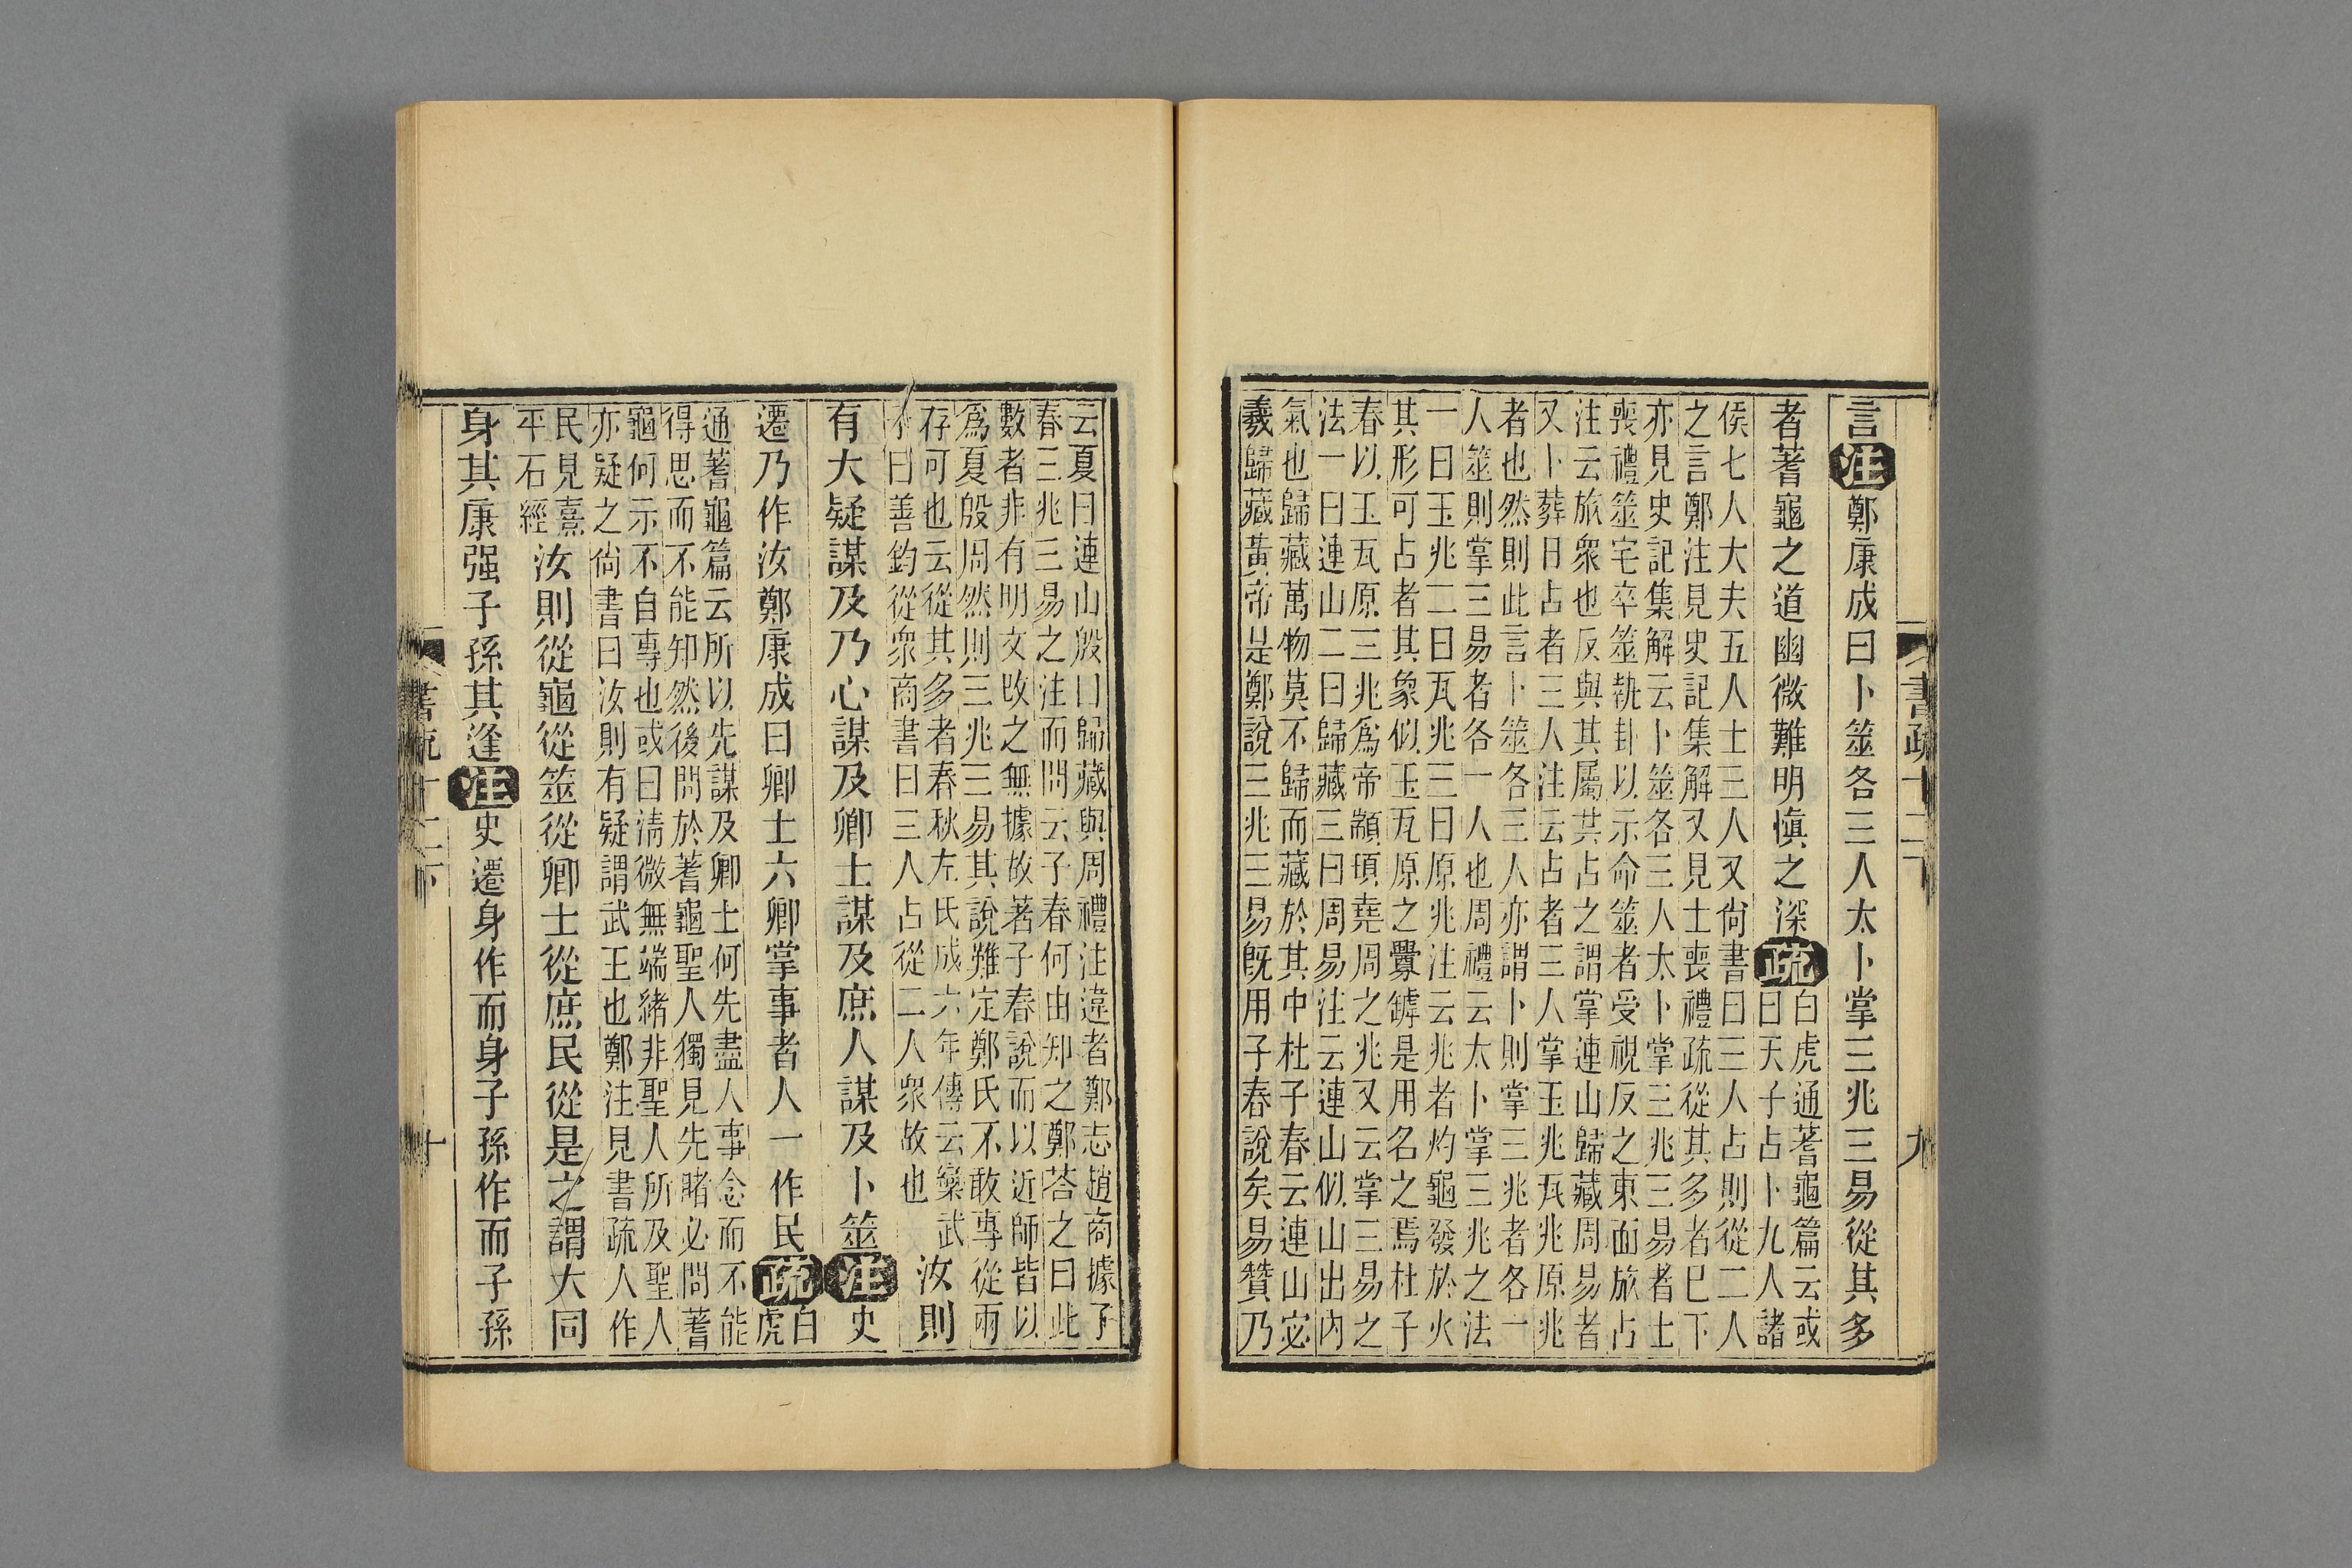 言注鄭康成曰卜筮各三人太卜掌三兆三易從其多
者蓍龜之道幽微難明愼之深疏
白虎通蓍龜篇云或
曰天子占卜九人諸
侯七人大夫五人士三人又尙書曰三人占則從二人
之言鄭注見史記集解又見士喪禮疏從其多者已下
亦見史記集解云卜筮各三人太卜掌三兆三易者士
喪禮筮宅卒筮執卦以示命筮者受視反之東面旅占
注云旅衆也反與其屬共占之謂掌連山歸藏周易者
又卜葬日占者三人注云占者三人掌玉兆瓦兆原兆
者也然則此言卜筮各三人亦謂卜則掌三兆者各一
人筮則掌三易者各一人也周禮云太卜掌三兆之法
一曰玉兆二曰瓦兆三曰原兆注云兆者灼龜發於火
其形可占者其象似玉瓦原之釁鏬是用名之焉杜子
春以玉瓦原三兆爲帝顓頊堯周之兆又云掌三易之
法一曰連山二曰歸藏三曰周易注云連山似山出內
氣也歸藏萬物莫不歸而藏於其中杜子春云連山宓
羲歸藏黃帝是鄭說三兆三易旣用子春說矣易贊乃
書疏十二下
九
云夏曰連山殷曰歸藏與周禮注違者鄭志趙商據子
春三兆三易之注而問云子春何由知之鄭荅之曰此
數者非有明文攷之無據故著子春說而以近師皆以
爲夏殷周然則三兆三易其說難定鄭氏不敢專從兩
存可也云從其多者春秋左氏成六年傳云欒武
子曰善鈞從衆商書曰三人占從二人衆故也
汝則
有大疑謀及乃心謀及卿士謀及庶人謀及卜筮注史
遷乃作汝鄭康成曰卿士六卿掌事者人一作民疏
白
虎
通蓍龜篇云所以先謀及卿士何先盡人事念而不能
得思而不能知然後問於蓍龜聖人獨見先睹必問蓍
龜何示不自專也或曰淸微無端緖非聖人所及聖人
亦疑之尙書曰汝則有疑謂武王也鄭注見書疏人作
民見熹
平石經
汝則從龜從筮從卿士從庶民從是之謂大同
身其康强子孫其逢注史遷身作而身子孫作而子孫
書疏十二下
十